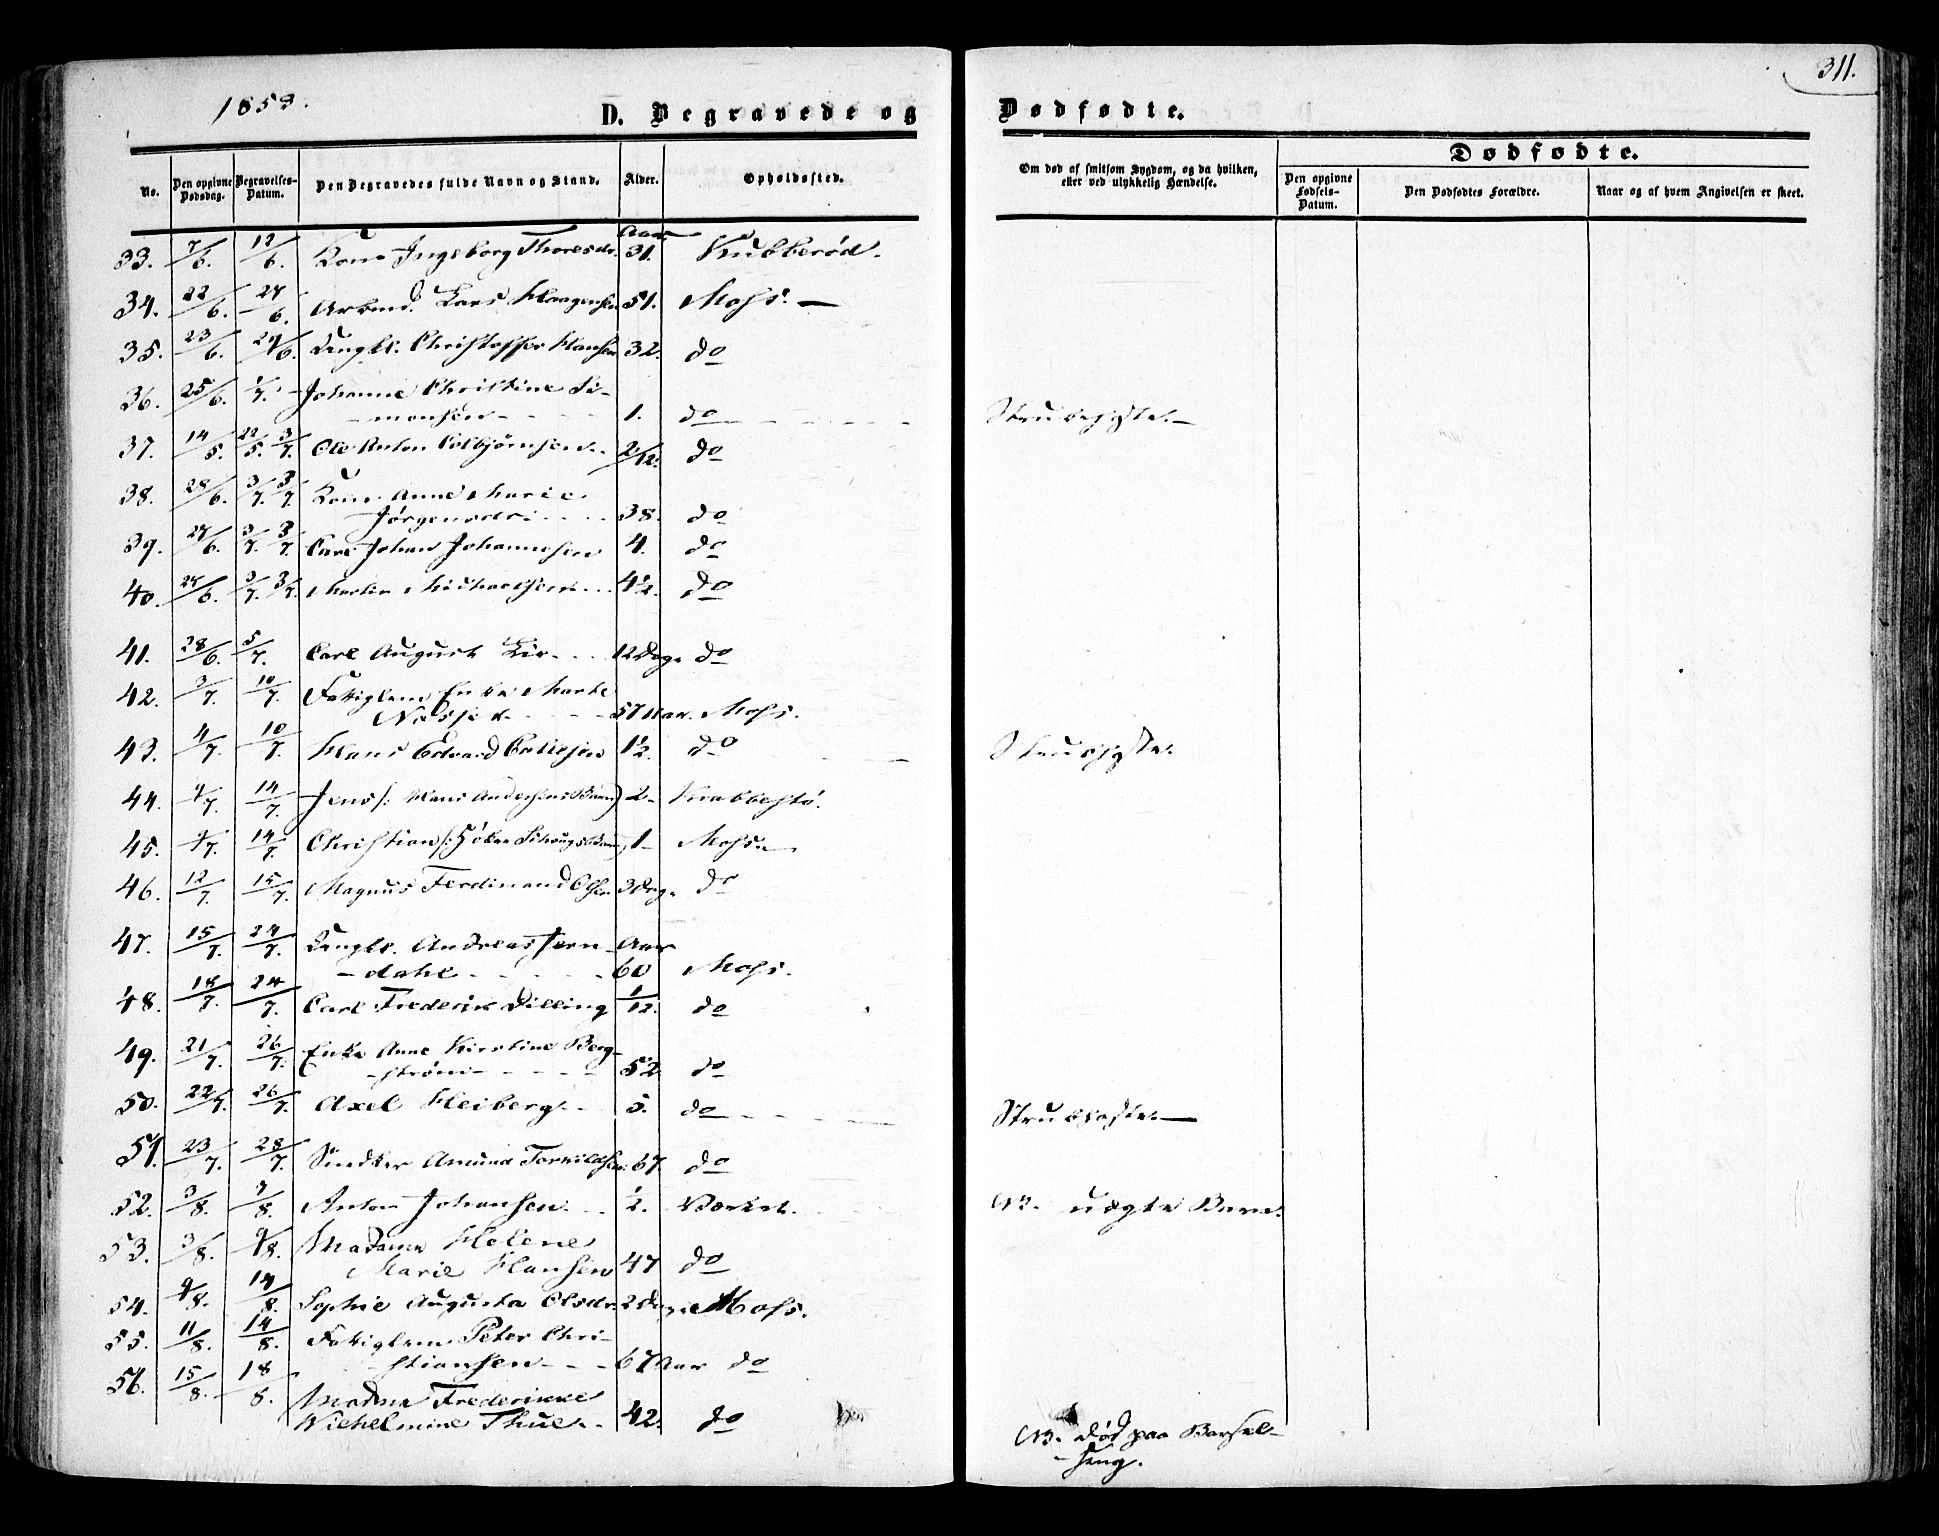 1853.
311.
D. Begravede og Dødfødte.
No.
Den opgivne Dødsdag.
Begravelses-Datum.
Den Begravedes fulde Navn og Stand.
Alder.
Opholdssted.
Om død af smitsom Sygdom, og da hvilken, eller ved ulykkelig Hændelse.
Dødfødte.
Den opgivne Fødsels-Datum.
Den Dødfødtes Forældre.
Naar og af hvem Angivelsen er skeet.
Aar
33. 7/6. 12/6. Kone Ingeborg Thoresdr. 31. Kubberød.
34. 22/6. 27/6. Arbmd. Lars Haagensen 51. Moss. —
35. 23/6. 29/6. Christoffer Hansen 32. do
36. 25/6. 1/7. Johanne Christine Si-
monsen 1. do Strubehoste. —
37. 14/5. 22/5. 3/7. Ole Anton Colbjørnsen 2/12. do
38. 28/6. 3/7. 3/7. Kone Anne Marie
Jørgensdr. 38. do
39. 27/6. 3/7. 3/7. Carl Johan Johannesen 4. do
40. 27/6. 3/7. 3/7. Martin Michaelsen 4½. do
41. 28/6. 5/7. Carl August Lie 12 Dage do
42. 3/7. 10/7. Fattiglem Enke Marte
57 Aar. Moss.
43. 4/7. 10/7. Hans Edvard 1½. do Strubehoste.
44. 9/7. 14/7. Jens /: Hans Andersens Barn) 2 - Krabbestø.
45. 9/7. 14/7. Christian /: 1 - Moss.
46. 12/7. 15/7. Magnus Ferdinand Olsen 3 Dage do
47. 15/7. 24/7. Andreas Jern- Aar
- dahl 60 Moss.
48. 18/7. 24/7. Carl Frederik Dilling 1/12. do
49. 21/7. 26/7. Enke Anne Kirstine Berg-
- strøm 52 do
50. 22/7. 26/7. Axel Heiberg 5. do Strubehoste. —
51. 23/7. 28/7. Snedker Amund Torkildsen 67. do
52. 3/8. 7/8. Anton Johansen. ½. Værket. NB. uægte Barn.
53. 3/8. 9/8. Madame Helene
Marie Hansen 47 do
54. 9/8. 14/8. Sophie Augusta Olsdr. 2 Dage Moss.
55. 11/8. 14/8. Fattiglem Peter Chri-
stiansen 67 Aar do
56. 15/8. 18/8. Madme Frederikke
Wilhelmine Thue 42. do NB. død paa Barsel-
- seng.